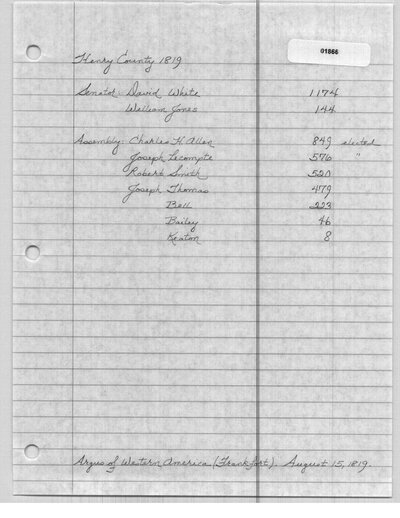 01866
Henry County 1819
Senator: David White 1174
William Jones 144
Assembly: Charles H. Allen 849 elected
Joseph Lecompte 576 "
Robert Smith 520
Joseph Thomas 479
Bell 223
Bailey 46
Keaton 8
Argus of Western America (Frankfort). August 15, 1819.